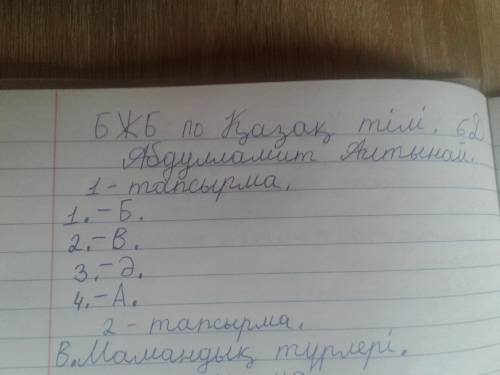 БЖБ по Қазақ тілі. 6
Абдулламит Алтынай.
1-тапсырма.
1.-Б.
2.-В.
3.-Ә.
4.-А.
2-тапсырма.
В.Мамандық түрлері.